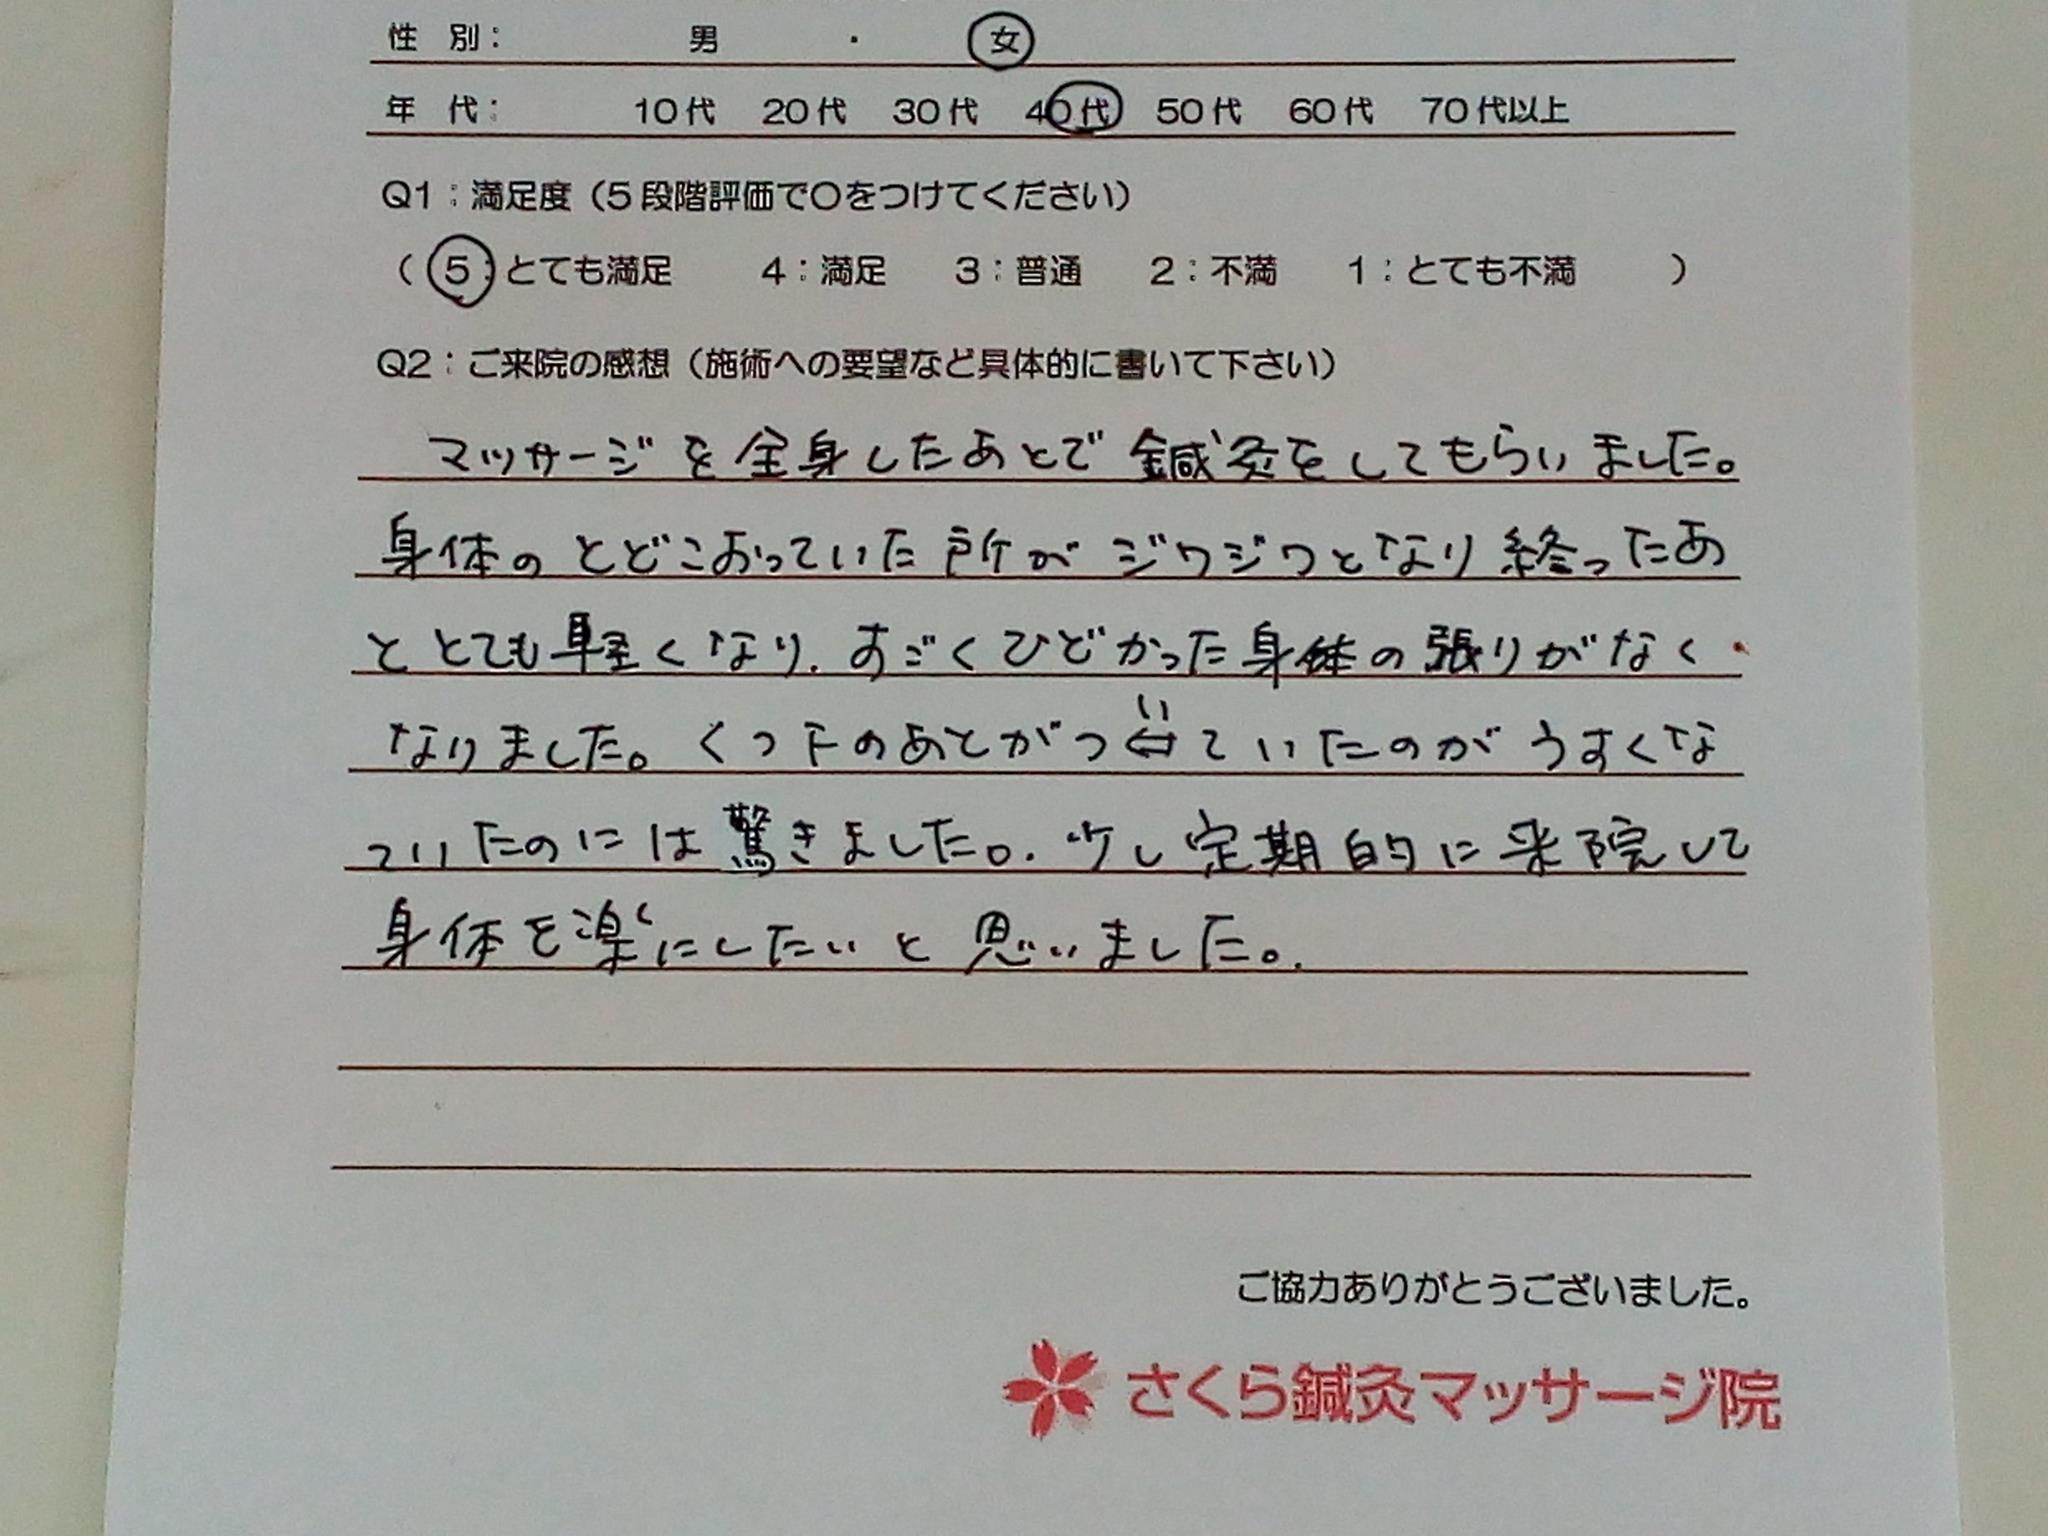 性 別： 男 ・ 女
年 代： 10代 20代 30代 40代 50代 60代 70代以上
Q1：満足度（5段階評価で〇をつけてください）
（ 5：とても満足 4：満足 3：普通 2：不満 1：とても不満 ）
Q2：ご来院の感想（施術への要望など具体的に書いて下さい）
マッサージを全身したあとで鍼灸をしてもらいました。
身体のとどこおっていた所がジワジワとなり終ったあ
ととても軽くなり、すごくひどかった身体の張りがなく
なりました。くつ下のあとがついていたのがうすくな
っていたのには驚きました。少し定期的に来院して
身体を楽にしたいと思いました。
ご協力ありがとうございました。
さくら鍼灸マッサージ院